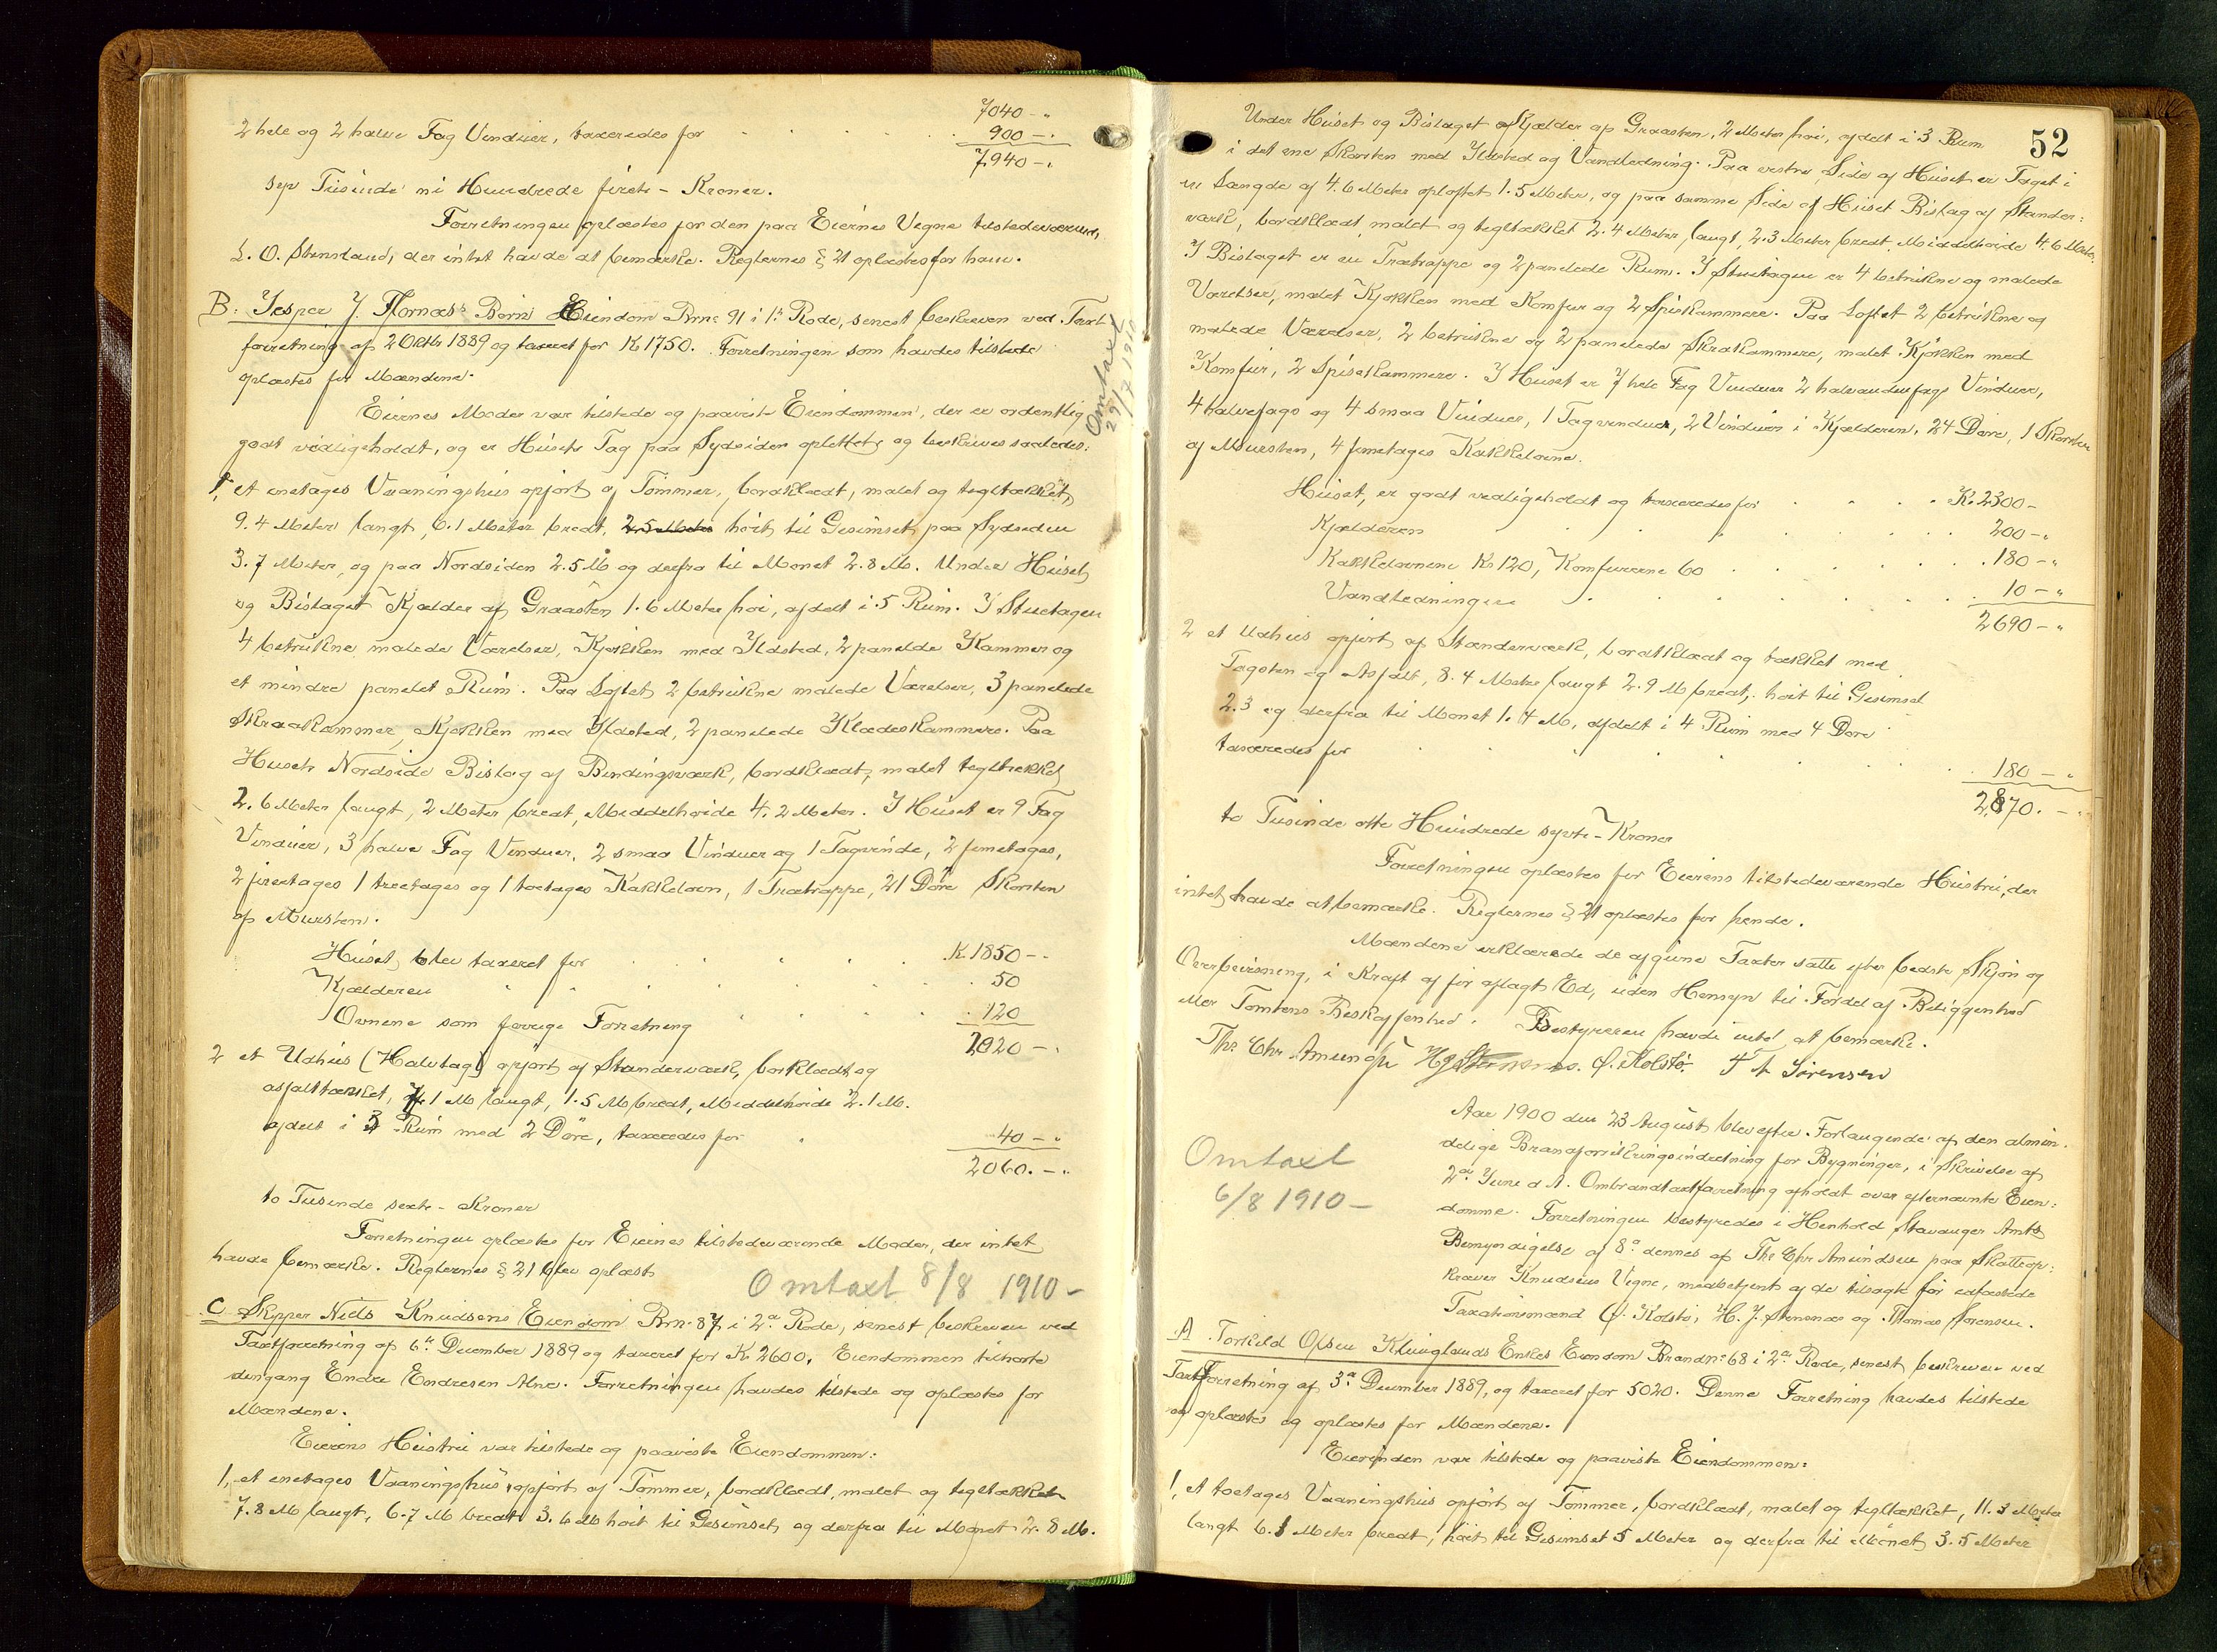 7040 - "
2 hele og 2 halve Fag Vinduer, taxeredes for 900 - "
7940 - "
syv Tusinde ni Hundrede firti - Kroner.
Forretningen oplæstes for den paa Eiernes Vegne tilstedeværende
L. O. Stensland, der intet havde at bemærke. Reglernes § 21 oplæstes for ham.
B: Jesper J. Flornæs's Børns Eiendom Brn: 91 i 1ste Rode, senest beskreven ved Taxt
forretning af 2 Octbr 1889 og taxeret for K 1750. Forretningen som havdes tilstede
oplæstes for Mændene.
Omtaxt
29/7 1910
Eiernes Moder var tilstede og paaviste Eiendommen, der er ordentlig
godt vedligeholdt, og er Husets Tag paa Sydsiden opløftet og beskrives saaledes:
1, et enetages Vaaningshus opført af Tømmer, bordklædt, malet og tegltækket,
9.4 Meter langt, 6.1 Meter bredt, 2.5 Meter høit til Gesimset paa Sydsiden
3.7 Meter, og paa Nordsiden 2.5 M og derfra til Mønet 2.8 M. Under Huset
og Bislaget Kjælder af Graasten 1.6 Meter høi, afdelt i 5 Rum. I Stuetagen
4 betrukne malede Værelser, Kjøkken med Ildsted, 2 panelde Kammer og
et mindre panelet Rum. Paa Loftet 2 betrukne malede Værelser, 3 panelede
Skraakammer, Kjøkken med Ildsted, 2 panelede Klædeskammere. Paa
Husets Nordside Bislag af Bindingsværk, bordklædt, malet tegltækket
2.6 Meter langt, 2 Meter bredt, Middelhøide 4.2 Meter. I Huset er 9 Fag
Vinduer, 3 halve Fag Vinduer, 2 smaa Vinduer og 1 Tagvindue, 2 femetages,
2 fireetages 1 treetages og 1 toetages Kakkelovn, 1 Trætrappe, 21 Døre Skorsten
af Mursten.
Huset, blev taxeret for K 1850 - "
Kjælderen " " 50
Ovnene som forrige Forretning 120
2020 - "
2 et Udhus (Halvtag) opført af Standerværk, bordklædt og
asfalttækket, 7.1 M langt, 1.5 M bredt, Middelhøide 2.1 M.
afdelt i 3 Rum med 2 Døre, taxeredes for 40 - "
2060. - "
to Tusinde sexti - Kroner
Forretningen oplæstes for Eiernes tilstedeværende Moder, der intet
havde bemærke. Reglernes § 21 blev oplæst
Omtaxt 8/8 1910 -
C Skipper Niels Knudsens Eiendom Brn: 87 i 2den Rode, senest beskreven ved
Taxtforretning af 6te December 1889 og taxeret for K 2600. Eiendommen tilhørte
dengang Endre Endresen Alne. Forretningen havdes tilstede og oplæstes for
Mændene.
Eierens Hustru var tilstede og paaviste Eiendommen:
1, et enetages Vaaningshus, opført af Tømmer, bordklædt, malet og tegltækket
7.8 M langt, 6.7 M bredt 3.6 M høit til Gesimset, og derfra til Mønet 2.8 M.
52
Under Huset og Bislaget Kjælder af Graasten, 2 Meter høi, afdelt i 3 Rum
i det ene Skorsten med Ildsted og Vandledning. Paa vestre Side af Huset er Taget i
en Længde af 4.6 Meter opløftet 1.5 Meter, og paa samme Side af Huset Bislag af Stander:
værk, bordklædt malet og tegltækket 2.4 Meter langt, 2.3 Meter bredt Middelhøide 4.6 Meter.
I Bislaget er en Trætrappe og 2 panelede Rum. I Stuetagen er 4 betrukne og malede
Værelser, malet Kjøkken med Komfur og 2 Spiskammere. Paa Loftet 2 betrukne og
malede Værelser, 2 betrukne og 2 panelede Skraakammere, malet Kjøkken med
Komfur, 2 Spisekammere. I Huset er 7 hele Fag Vinduer 2 halvandenfags Vinduer,
4 halvefags og 4 smaa Vinduer, 1 Tagvindue, 2 Vinduer i Kjælderen, 24 Døre, 1 Skorsten
af Mursten, 4 femetages Kakkelovne.
Huset, er godt vedligeholdt og taxeredes for K. 2300 -
Kjælderen 200 - "
Kakkelovnene Kr 120, Komfurerne 60 180 - "
Vandledningen 10 - "
2690 - "
2 et Udhus opført af Standerværk, bordklædt og tækket med
Tagsten og Asfalt, 8.4 Meter langt 2.9 M bredt, høit til Gesimset
2.3 og derfra til Mønet 1.4 M, afdelt i 4 Rum med 4 Døre
taxeredes for 180 - "
2,870. - "
to Tusinde otte Hundrede sytti - Kroner
Forretningen oplæstes for Eierens tilstedeværende Hustru, der
intet havde at bemærke. Reglernes § 21 oplæstes for hende.
Mændene erklærede de afgivne Taxter satte efter bedste Skjøn og
Overbevisning, i Kraft af før aflagt Ed, uden Hensyn til Fordel af Beliggenhed
eller Tomtens Beskaffenhed. Bestyreren havde intet at bemærke.
Ths. Chr. Amundsen H J Stensnæs. O. Kolstø. T A Sørensen
Aar 1900 den 23 August blev efter Forlangende af den almin:
delige Brandforsikringsindretning for Bygninger, i Skrivelse af
2den Juni d A. Ombrandtaxtforretning afholdt over efternævnte Eien:
domme. Forretningen bestyredes i Henhold Stavanger Amts
Bemyndigelse af 8de dennes af Ths Chr Amundsen paa Skatteop:
kræver Knudsens Vegne, medbetjent af de tilsagte før edfæstede
Taxationsmænd O. Kolstø, H. J. Stensnæs og Thomas Sørensen.
Omtaxt
6/8 1910 -
A. Torkild Olsen Klinglands Enkes Eiendom Brandn: 68 i 2den Rode, senest beskreven ved
Taxtforretning af 3die December 1889, og taxeret for 5020. Denne Forretning havdes tilstede
og oplæstes og oplæstes for Mændene.
Eierinden var tilstede og paaviste Eiendommen:
1, et toetages Vaaningshus opført af Tømmer, bordklædt, malet og tegltækket, 11.3 Meter
langt 6.8 Meter bredt, høit til Gesimset 5 Meter og derfra til Mønet, 3.5 Meter